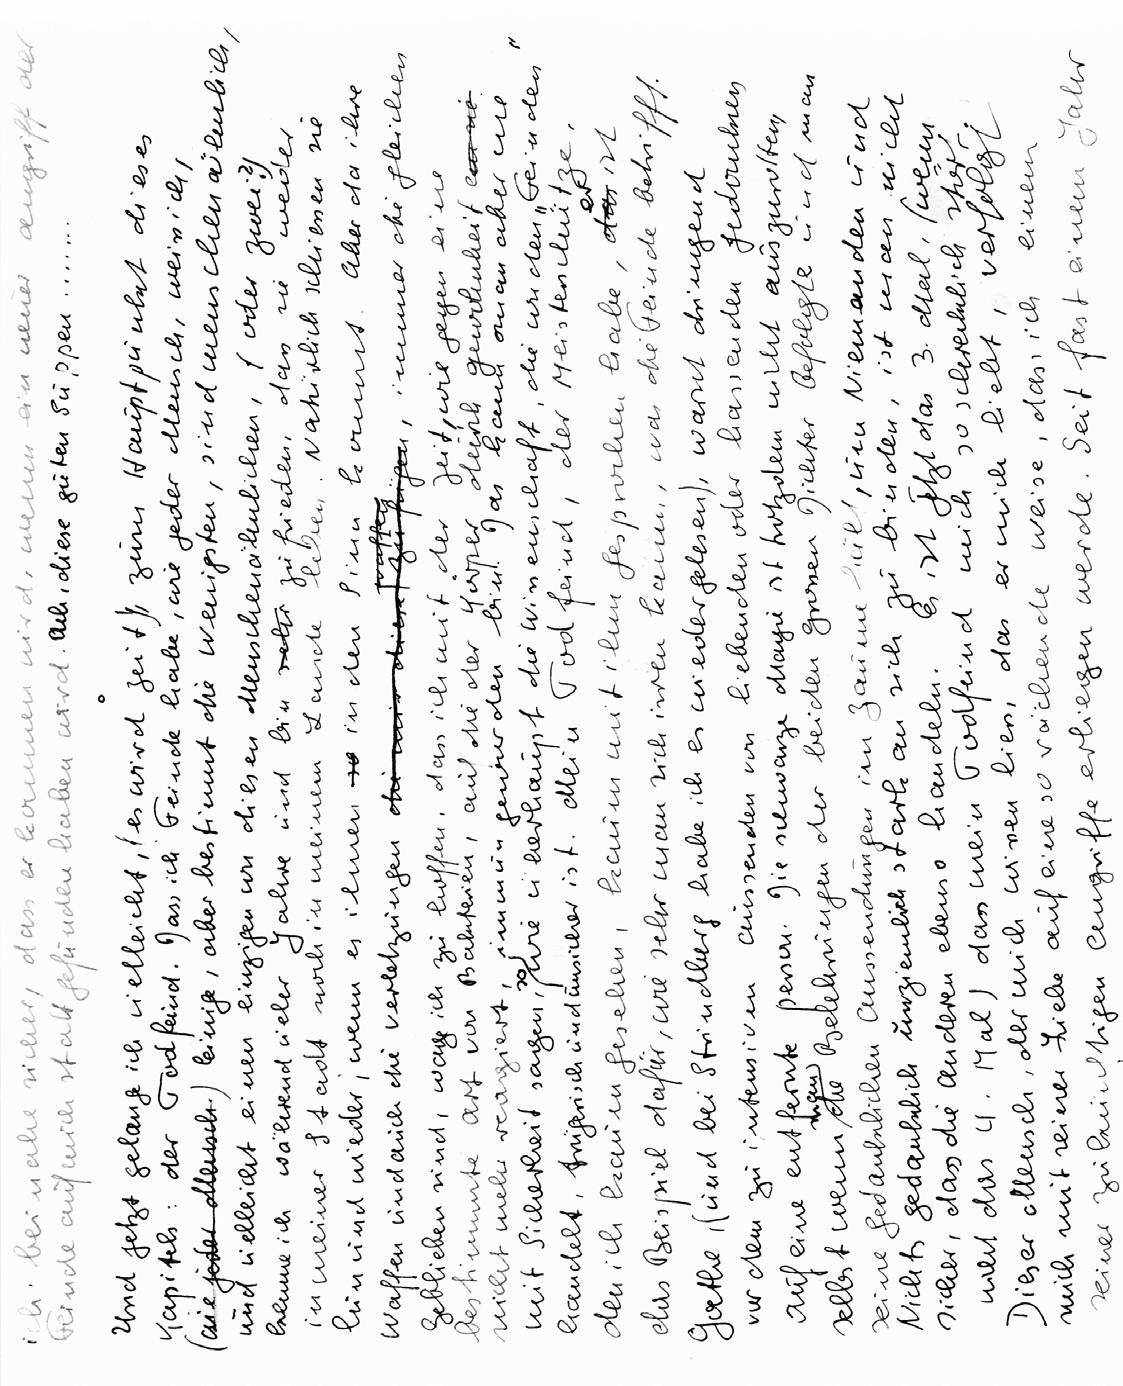 ich beinahe sicher, dass er kommen wird, wenn ein neuer angriff der
Feinde auf mich stattgefunden haben wird. Ach, diese guten Suppen......
Und jetzt gelange ich vielleicht, (es wird zeit), zum Hauptpunkt dieses
Kapitels: der Todfeind. Dass ich Feinde habe, wie jeder Mensch, weiss ich,
(wie jeder Mensch) einige, aber bestimmt die wenigsten, sind menschenähnlich,
und vielleicht einen einzigen von diesen Menschenähnlichen, (oder zwei?)
kenne ich während vieler Jahre und bin zufrieden, dass sie weder
in meiner Stadt noch in meinem Lande leben. Natürlich schiessen sie
hin und wieder, wenn es ihnen so in den Sinn kommt. Aber da ihre
Waffen und auch die verletzungen die mir diese waffen zufügen, immer die gleichen
geblieben sind, wage ich zu hoffen, dass ich mit der Zeit, wie gegen eine
bestimmte art von Bakterien, auf die der Körper durch gewohnheit
nicht mehr reagiert, immun geworden bin. Das kann man aber nie
mit Sicherheit sagen, so wie überhaupt die wissenschaft, die von den "Feinden"
handelt, trügerisch und unsicher ist. Mein Todfeind, der Meisterschütze,
den ich kaum gesehen, kaum mit ihm gesprochen habe, er ist
das Beispiel dafür, wie sehr man sich irren kann, was die Feinde betrifft.
Goethe, (und bei Strindberg habe ich es wiedergelesen), warnt dringend
vor dem zu intensiven aussenden von liebenden oder hassenden gedanken
auf eine entfernte person. Die schwarze Magie ist trotzdem nicht auszurotten,
selbst wenn man die Belehrungen der beiden grossen Dichter befolgte und man
seine gedanklichen aussendungen im zaume hielt, um Niemanden und
Nichts gedanklich unziemlich stark an sich zu binden, ist man nicht
sicher, dass die anderen ebenso handeln. Es ist jetzt das 3. Mal, (wenn
nicht das 4. Mal) dass mein Todfeind mich so schrecklich stört,
Dieser Mensch, der mich wissen liess, das er mich liebt, verfolgt
mich mit seiner Liebe auf eine so reichende weise, dass ich einem
seiner zukünftigen angriffe erliegen werde. Seit fast einem Jahr